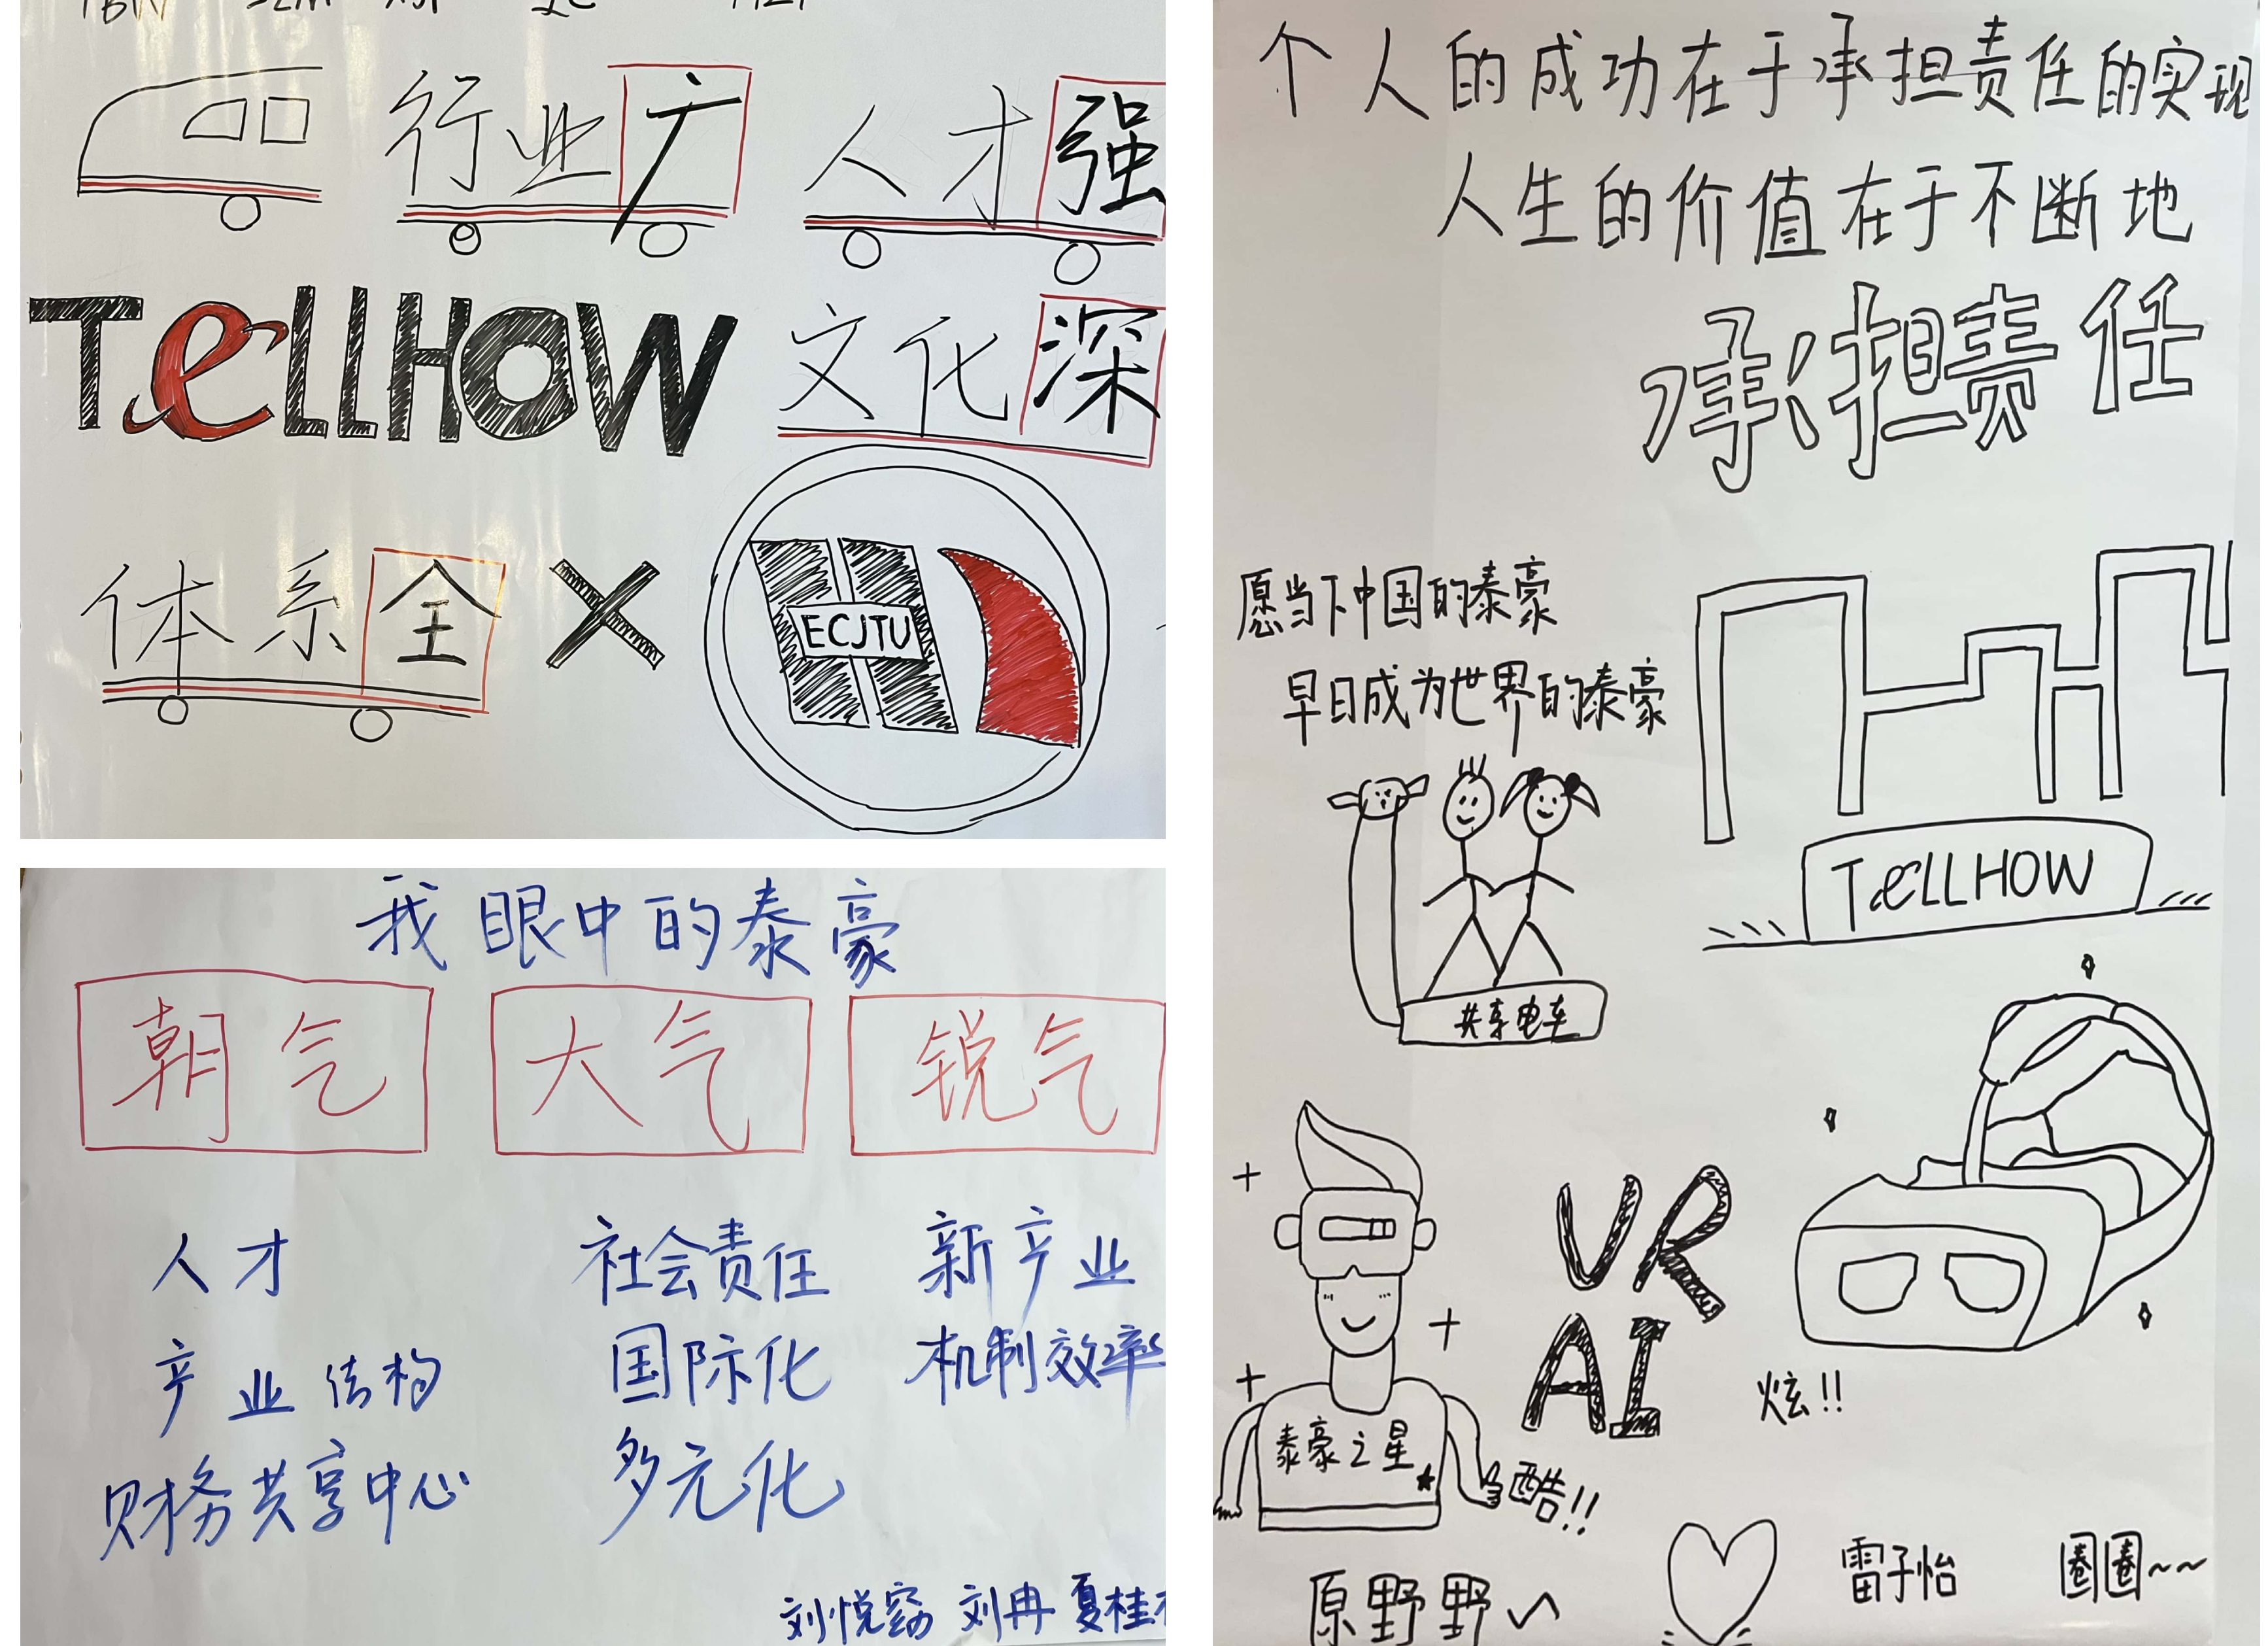 行业广 人才强
TellHow 文化深
体系全 × ECJTU
我眼中的泰豪
朝气 大气 锐气
人才 社会责任 新产业
产业结构 国际化 机制效率
财务共享中心 多元化
刘悦 刘冉 夏桂
个人的成功在于承担责任的实现
人生的价值在于不断地
承担责任
愿当下中国的泰豪
早日成为世界的泰豪
TellHow
共享电车
VR
AI
炫!!
泰豪之星
酷!!
原野野~ 雷子怡 圈圈~~